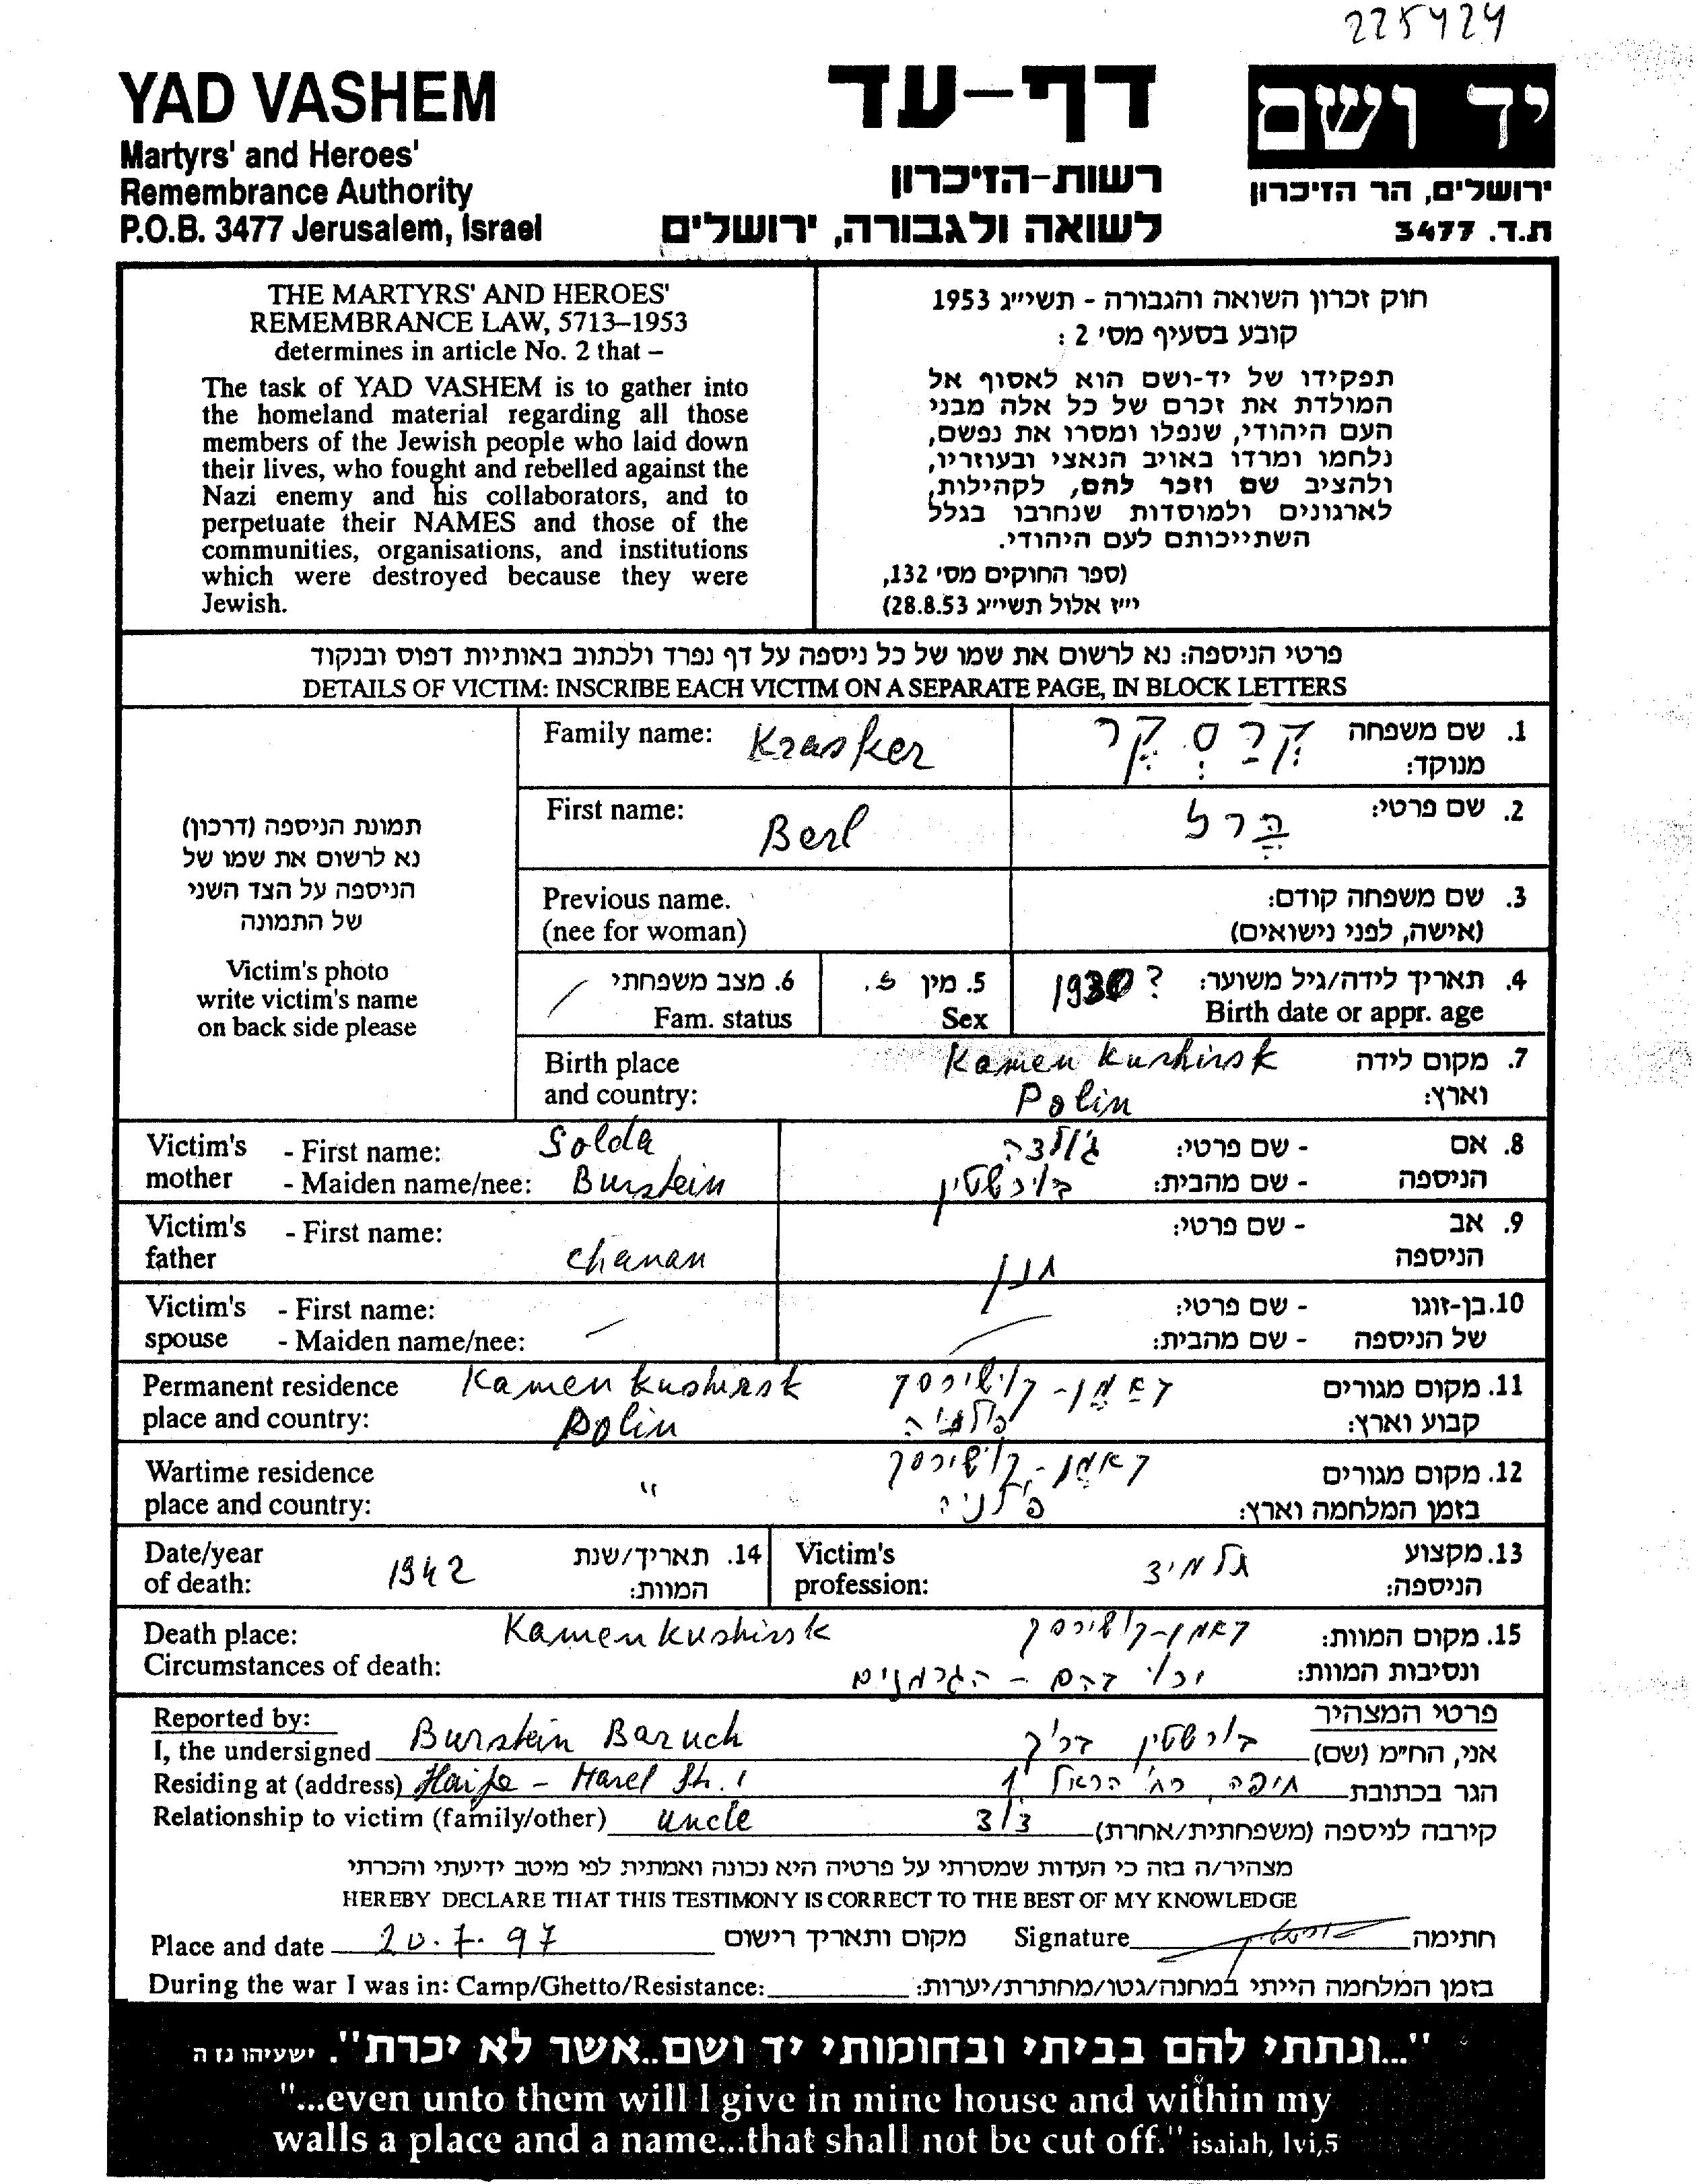 225424
YAD VASHEM
Martyrs' and Heroes'
Remembrance Authority
P.O.B. 3477 Jerusalem, Israel
דף-עד
רשות-הזיכרון
לשואה ולגבורה, ירושלים
יד ושם
ירושלים, הר הזיכרון
ת.ד. 3477
THE MARTYRS' AND HEROES'
REMEMBRANCE LAW, 5713–1953
determines in article No. 2 that –
The task of YAD VASHEM is to gather into
the homeland material regarding all those
members of the Jewish people who laid down
their lives, who fought and rebelled against the
Nazi enemy and his collaborators, and to
perpetuate their NAMES and those of the
communities, organisations, and institutions
which were destroyed because they were
Jewish.
חוק זכרון השואה והגבורה - תשי״ג 1953
קובע בסעיף מס׳ 2 :
תפקידו של יד-ושם הוא לאסוף אל
המולדת את זכרם של כל אלה מבני
העם היהודי, שנפלו ומסרו את נפשם,
נלחמו ומרדו באויב הנאצי ובעוזריו,
ולהציב שם וזכר להם, לקהילות,
לארגונים ולמוסדות שנחרבו בגלל
השתייכותם לעם היהודי.
(ספר החוקים מס׳ 132,
י״ז אלול תשי״ג 28.8.53)
פרטי הניספה: נא לרשום את שמו של כל ניספה על דף נפרד ולכתוב באותיות דפוס ובנקוד
DETAILS OF VICTIM: INSCRIBE EACH VICTIM ON A SEPARATE PAGE, IN BLOCK LETTERS
תמונת הניספה (דרכון)
נא לרשום את שמו של
הניספה על הצד השני
של התמונה
Victim's photo
write victim's name
on back side please
Family name: Krasker קָרַסְקֶר 1. שם משפחה
מנוקד:
First name: Berl בֶּרל 2. שם פרטי:
Previous name. 3. שם משפחה קודם:
(nee for woman) (אישה, לפני נישואים)
6. מצב משפחתי 5. מין ז. 1930 ? 4. תאריך לידה/גיל משוער:
Fam. status Sex Birth date or appr. age
Birth place Kamen Kushirsk 7. מקום לידה
and country: Polin וארץ:
Victim's - First name: Golda ג'ולדה - שם פרטי: 8. אם
mother - Maiden name/nee: Burstein בורשטיין - שם מהבית: הניספה
Victim's - First name: - שם פרטי: 9. אב
father Chanan חנן הניספה
Victim's - First name: - שם פרטי: 10. בן-זוגו
spouse - Maiden name/nee: - שם מהבית: של הניספה
Permanent residence Kamen Kushirsk קאמן-קושירסק 11. מקום מגורים
place and country: Polin פולניה קבוע וארץ:
Wartime residence קאמן-קושירסק 12. מקום מגורים
place and country: " פולניה בזמן המלחמה וארץ:
Date/year 1942 14. תאריך/שנת Victim's תלמיד 13. מקצוע
of death: המוות: profession: הניספה:
Death place: Kamen Kushirsk קאמן-קושירסק 15. מקום המוות:
Circumstances of death: הגרמנים ונסיבות המוות:
Reported by: פרטי המצהיר
I, the undersigned Burstein Baruch בורשטיין ברוך אני, הח״מ (שם)
Residing at (address) Haifa - Harel St. 1 חיפה, רח' הראל 1 הגר בכתובת
Relationship to victim (family/other) uncle דוד קירבה לניספה (משפחתית/אחרת)
מצהיר/ה בזה כי העדות שמסרתי על פרטיה היא נכונה ואמתית לפי מיטב ידיעתי והכרתי
HEREBY DECLARE THAT THIS TESTIMONY IS CORRECT TO THE BEST OF MY KNOWLEDGE
Place and date 20.7.97 מקום ותאריך רישום Signature חתימה
During the war I was in: Camp/Ghetto/Resistance: בזמן המלחמה הייתי במחנה/גטו/מחתרת/יערות:
"...ונתתי להם בביתי ובחומותי יד ושם..אשר לא יכרת". ישעיהו נו ה
"...even unto them will I give in mine house and within my
walls a place and a name...that shall not be cut off." isaiah, lvi,5